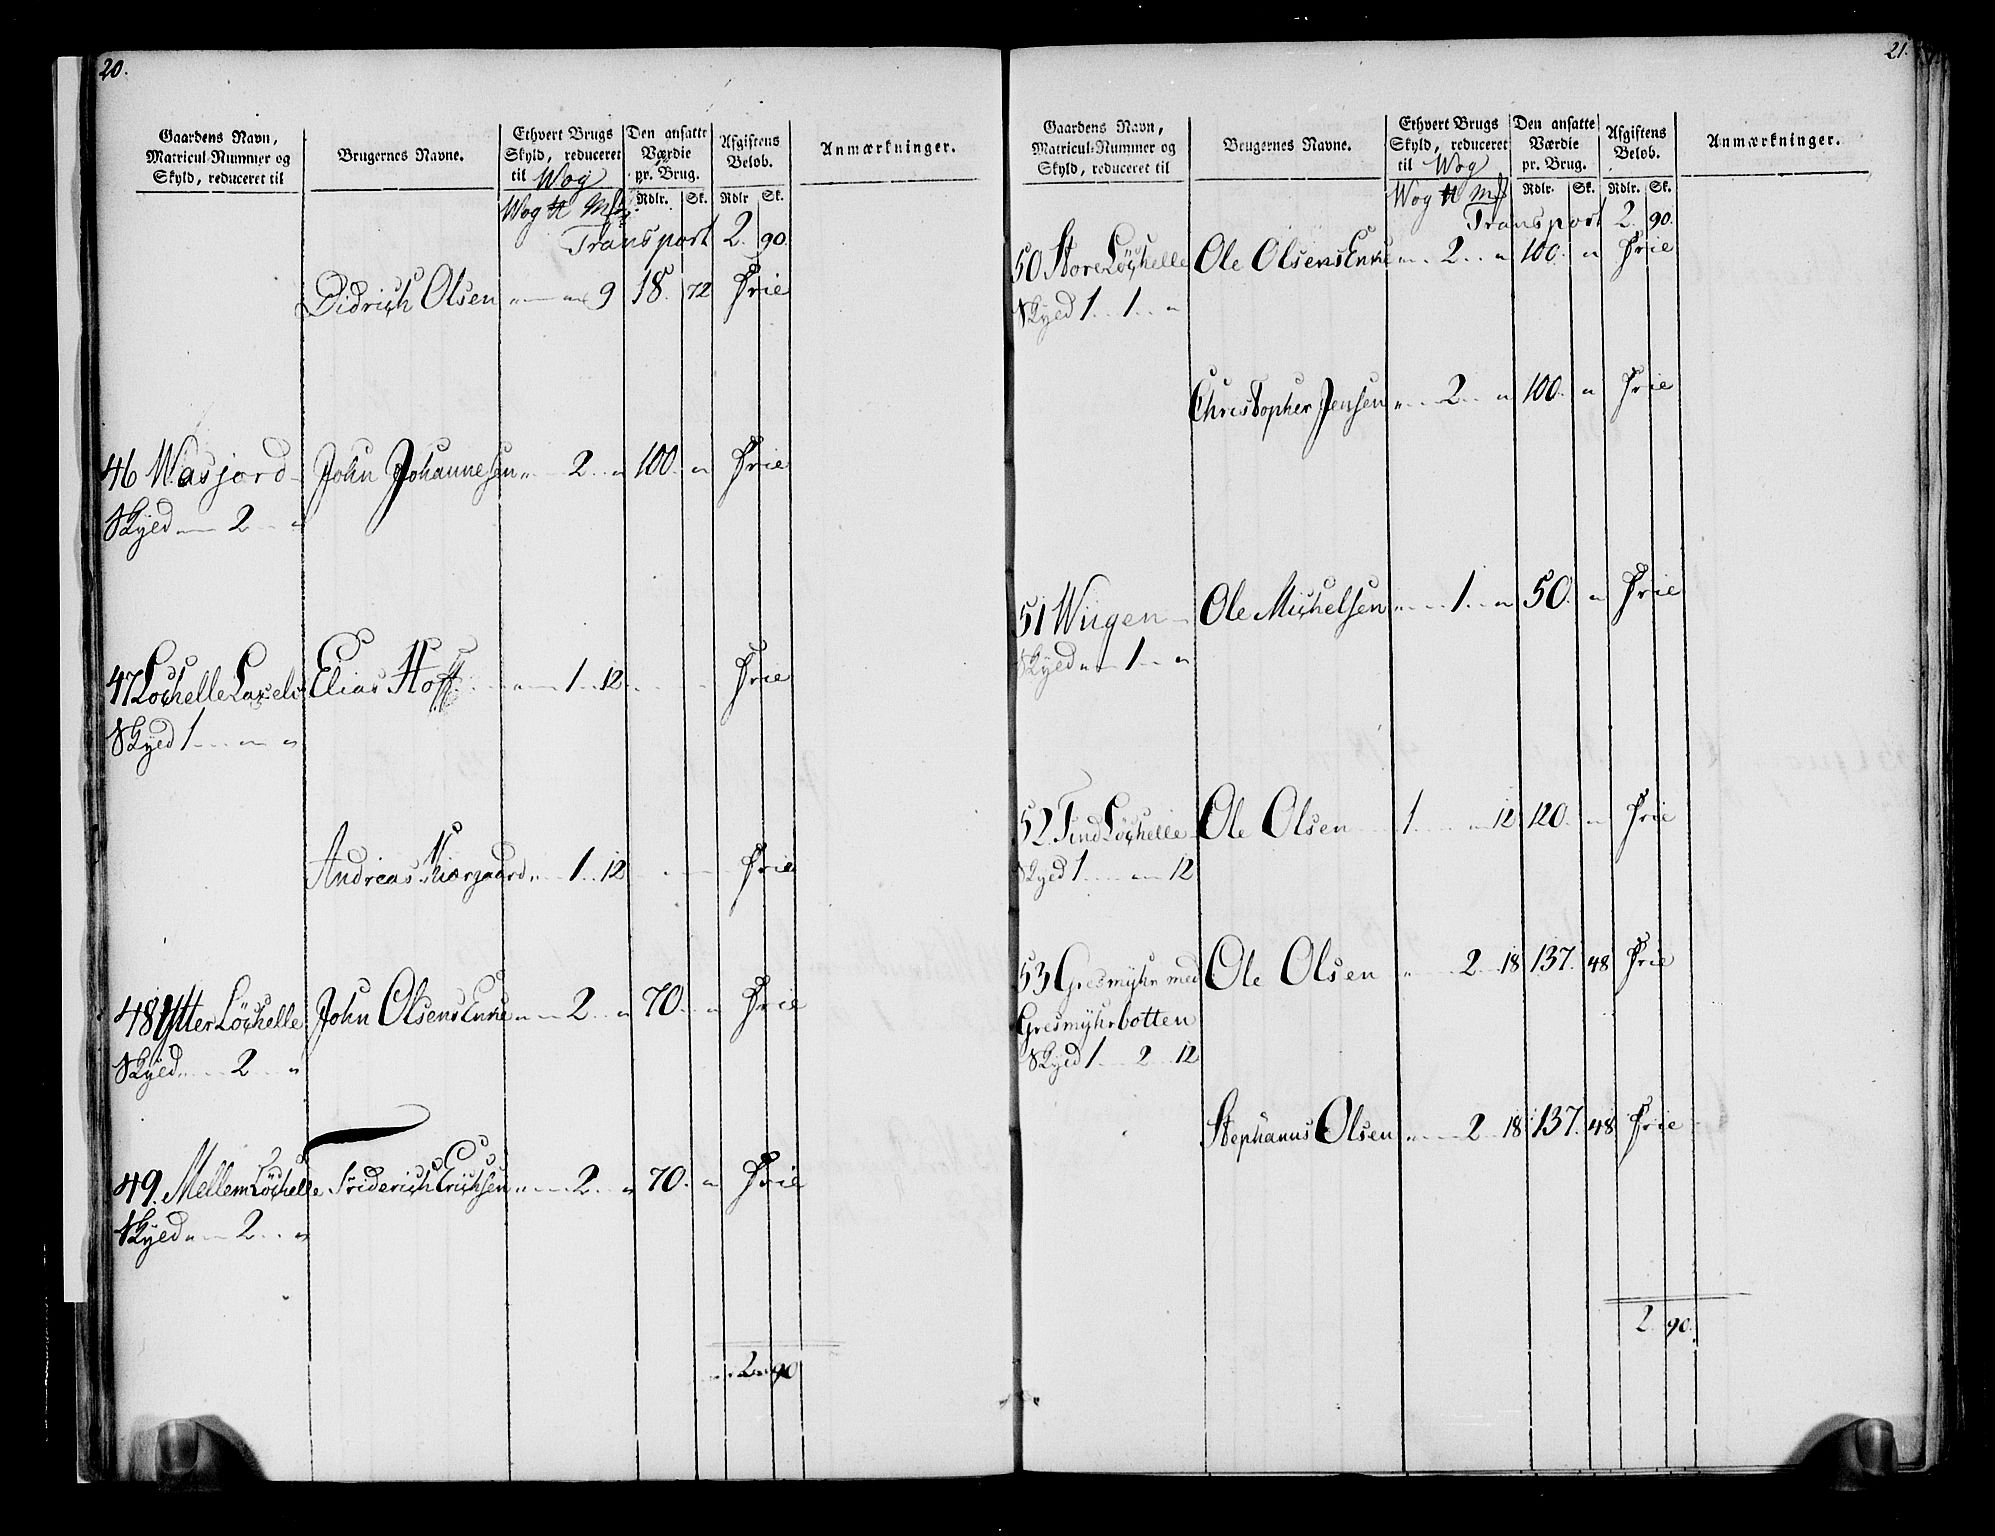 20.
Gaardens Navn, Matricul-Nummer og Skyld, reduceret til
Brugernes Navne.
Ethvert Brugs Skyld, reduceret til Wog
Den ansatte Værdie pr. Brug.
Afgiftens Beløb.
Anmærkninger.
Wog ℔ Mk Rdlr. Sk. Rdlr Sk.
Transport 2. 90.
Didrich Olsen " — " 9 18. 72 Frie
46 Wasjord John Johannesen " 2 " 100. " Frie
Skyed " 2 "
47 Lochelle Laxelv Elias Hoff " 1 12 Frie
Skyed 1 " "
Andreas Kiærgaard " 1 12 Frie
48 Ytter Löchelle John Olsens Enke " 2 " 70. " Frie
Skyed " 2 "
49. Mellem Löchelle Friderich Erichsen " 2 " 70. " Frie
Skyed " 2 "
2 90
21.
Gaardens Navn, Matricul-Nummer og Skyld, reduceret til
Brugernes Navne.
Ethvert Brugs Skyld, reduceret til Wog
Den ansatte Værdie pr. Brug.
Afgiftens Beløb.
Anmærkninger.
Wog ℔ Mk Rdlr. Sk. Rdlr. Sk.
Transport 2. 90.
50 Store Löchelle Ole Olsens Enke " 2 " 100. " Frie
Skyed 1 1 "
Christopher Jensen " 2 " 100. " Frie
51 Wiigen Ole Michelsen " 1 " 50. " Frie
Skyed " 1 "
52 Find Löchelle Ole Olsen 1 " 12 120. " Frie
Skyed 1 " 12
53 Gresmyhr med Ole Olsen " 2 18 137. 48 Frie
Gresmyhrbotten
Skyed 1 2 12
Stephanus Olsen " 2 18 137. 48 Frie
2. 90.